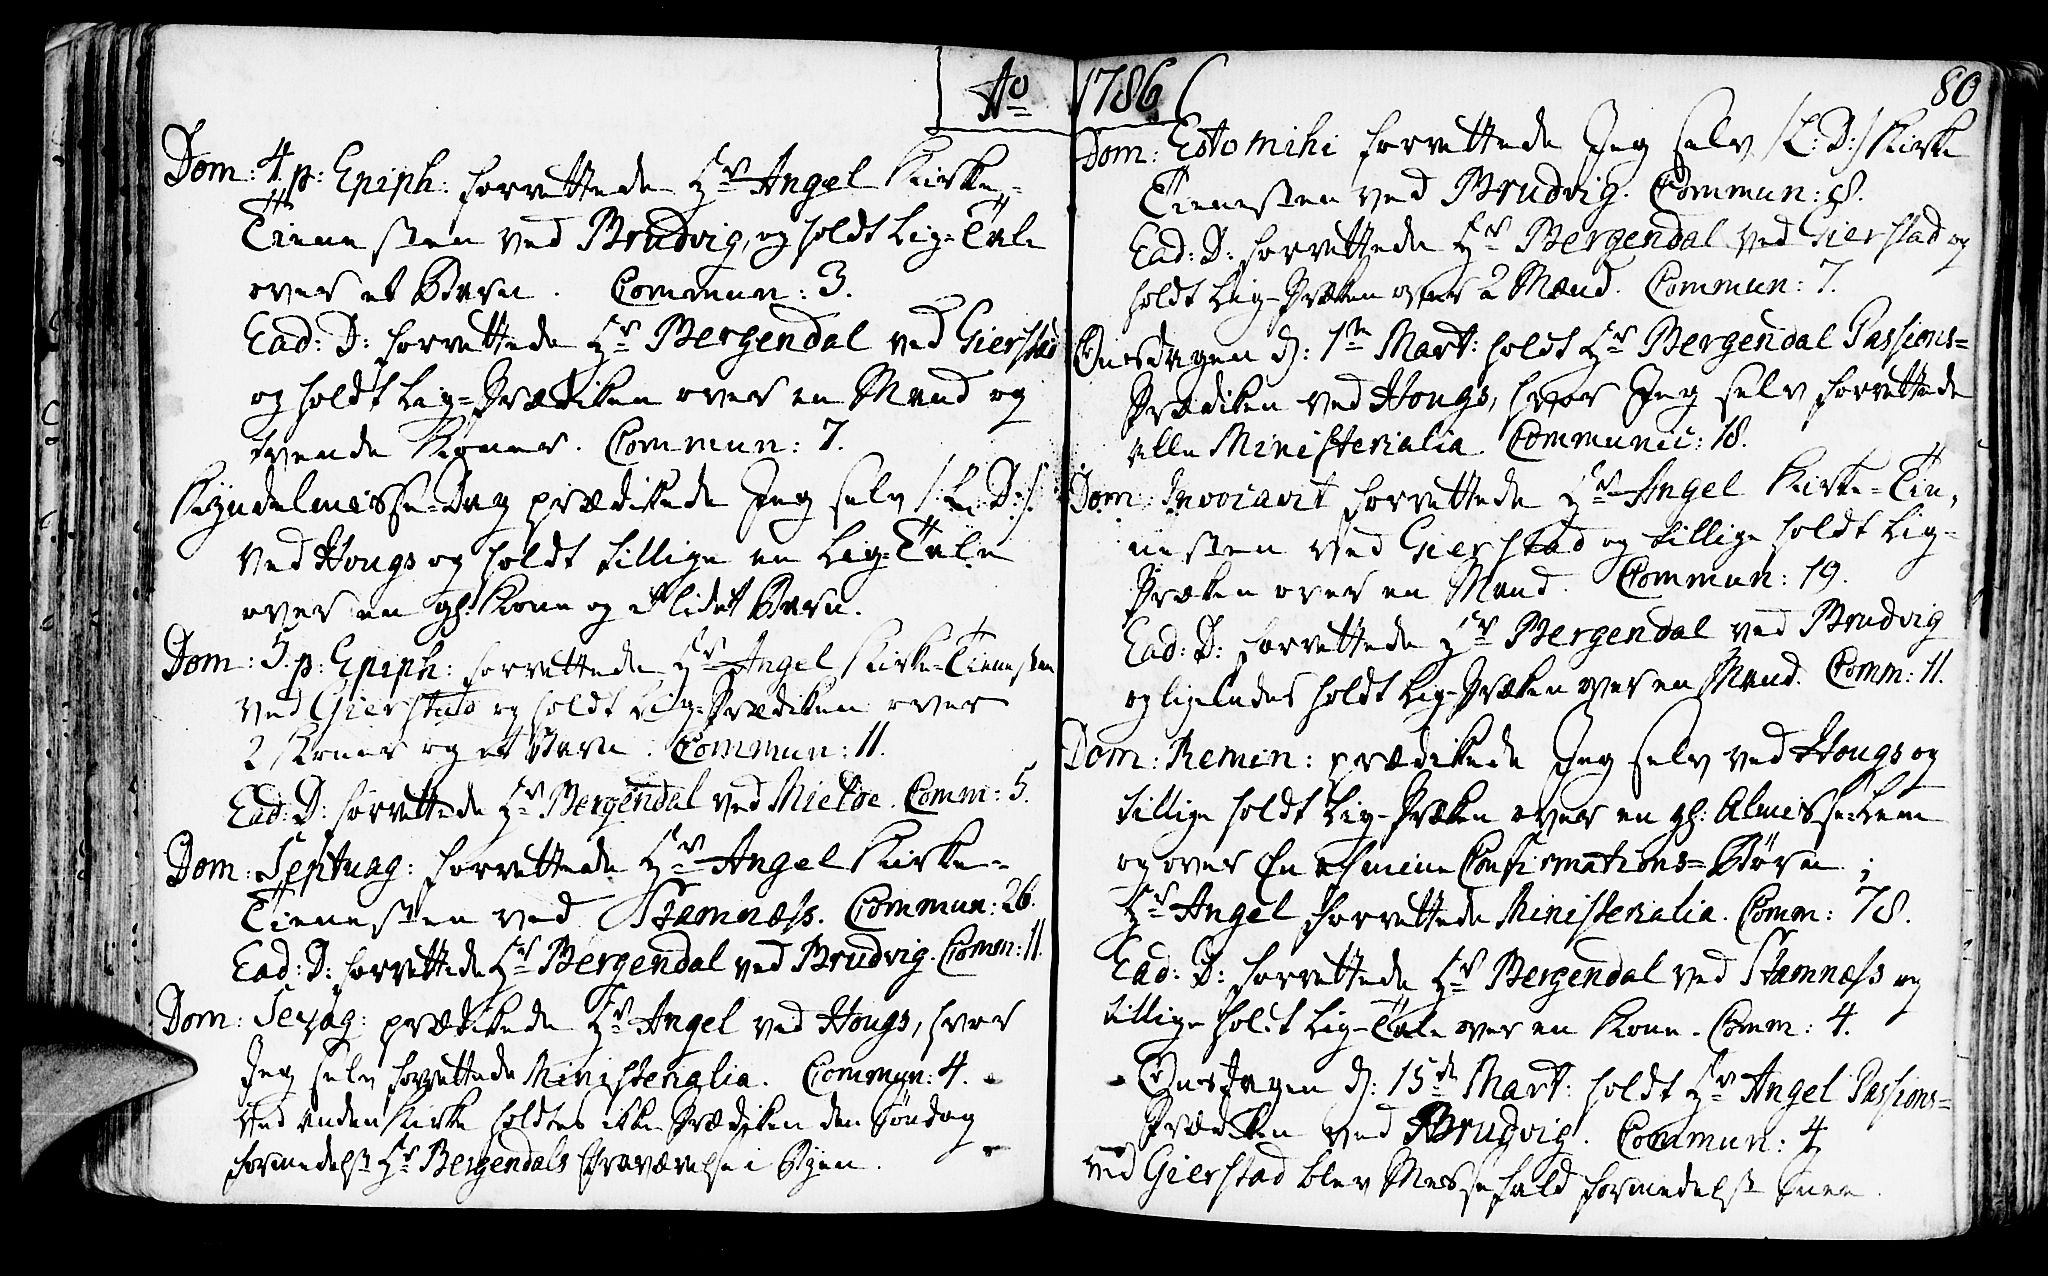 Ao 1786
80
Dom: 4. p: Epiph: forrettede Hr Angel Kirke-
Tienesten ved Brudvig, og holdt Lig-Tale
over et Barn. Commun: 3.
Ead: D: forrettede Hr Bergendal ved Gierstad
og holdt Lig-Prædiken over en Mand og
tvende Koner. Commun: 7.
Kyndelmisse-Dag prædikede Jeg selv /:L: D:/
ved Hougs og holdt tillige en Lig-Tale
over en gl: Kone og et lidet Barn.
Dom: 5. p: Epiph: forrettede Hr Angel Kirke-Tienesten
ved Gierstad og holdt Lig-Prædiken over
2 Koner og et Barn. Commun: 11.
Ead: D: forrettede Hr Bergendal ved Mielde. Comm: 5.
Dom: Septuag: forrettede Hr Angel Kirke-
Tienesten ved Stamnæss. Commun: 26.
Ead: D: forrettede Hr Bergendal ved Brudvig. Comm: 11.
Dom: Sexag: prædikede Hr Angel ved Hougs, hvor
Jeg selv forrettede Ministerialia. Commun: 4.
Ved anden Kirke holdtes ikke Prædiken den Søndag
formedelst Hr Bergendals Fraværelse i Byen.
Dom: Esto mihi forrettede Jeg selv /:L: D:/ Kirke
Tienesten ved Brudvig. Commun: 8.
Ead: D: forrettede Hr Bergendal ved Gierstad og
holdt Lig-Præken over 2 Mænd. Commun: 7.
Onsdagen d: 1ste Mart: holdt Hr Bergendal Passions-
Prædiken ved Hougs, hvor Jeg selv forrettede
alle Ministerialia. Communic: 18.
Dom: Invocavit forrettede Hr Angel Kirke-Tie-
nesten ved Gierstad og tillige holdt Lig-
Præken over en Mand. Commun: 19.
Ead: D: forrettede Hr Bergendal ved Brudvig
og ligeledes holdt Lig-Præken over en Mand. Comm: 11.
Dom: Remin: prædikede Jeg selv ved Hougs og
tillige holdt Lig-Præken over en gl: Almisse-Lem
og over En af mine Confirmations-Børn;
Hr Angel forrettede Ministerialia. Comm: 78.
Ead: D: forrettede Hr Bergendal ved Stamnæss og
tillige holdt Lig-Tale over en Kone. Comm: 4.
Onsdagen d: 15de Mart: holdt Hr Angel Passions-
Prædiken ved Brudvig. Commun: 4,
ved Gierstad blev Messefald formedelst Snee.